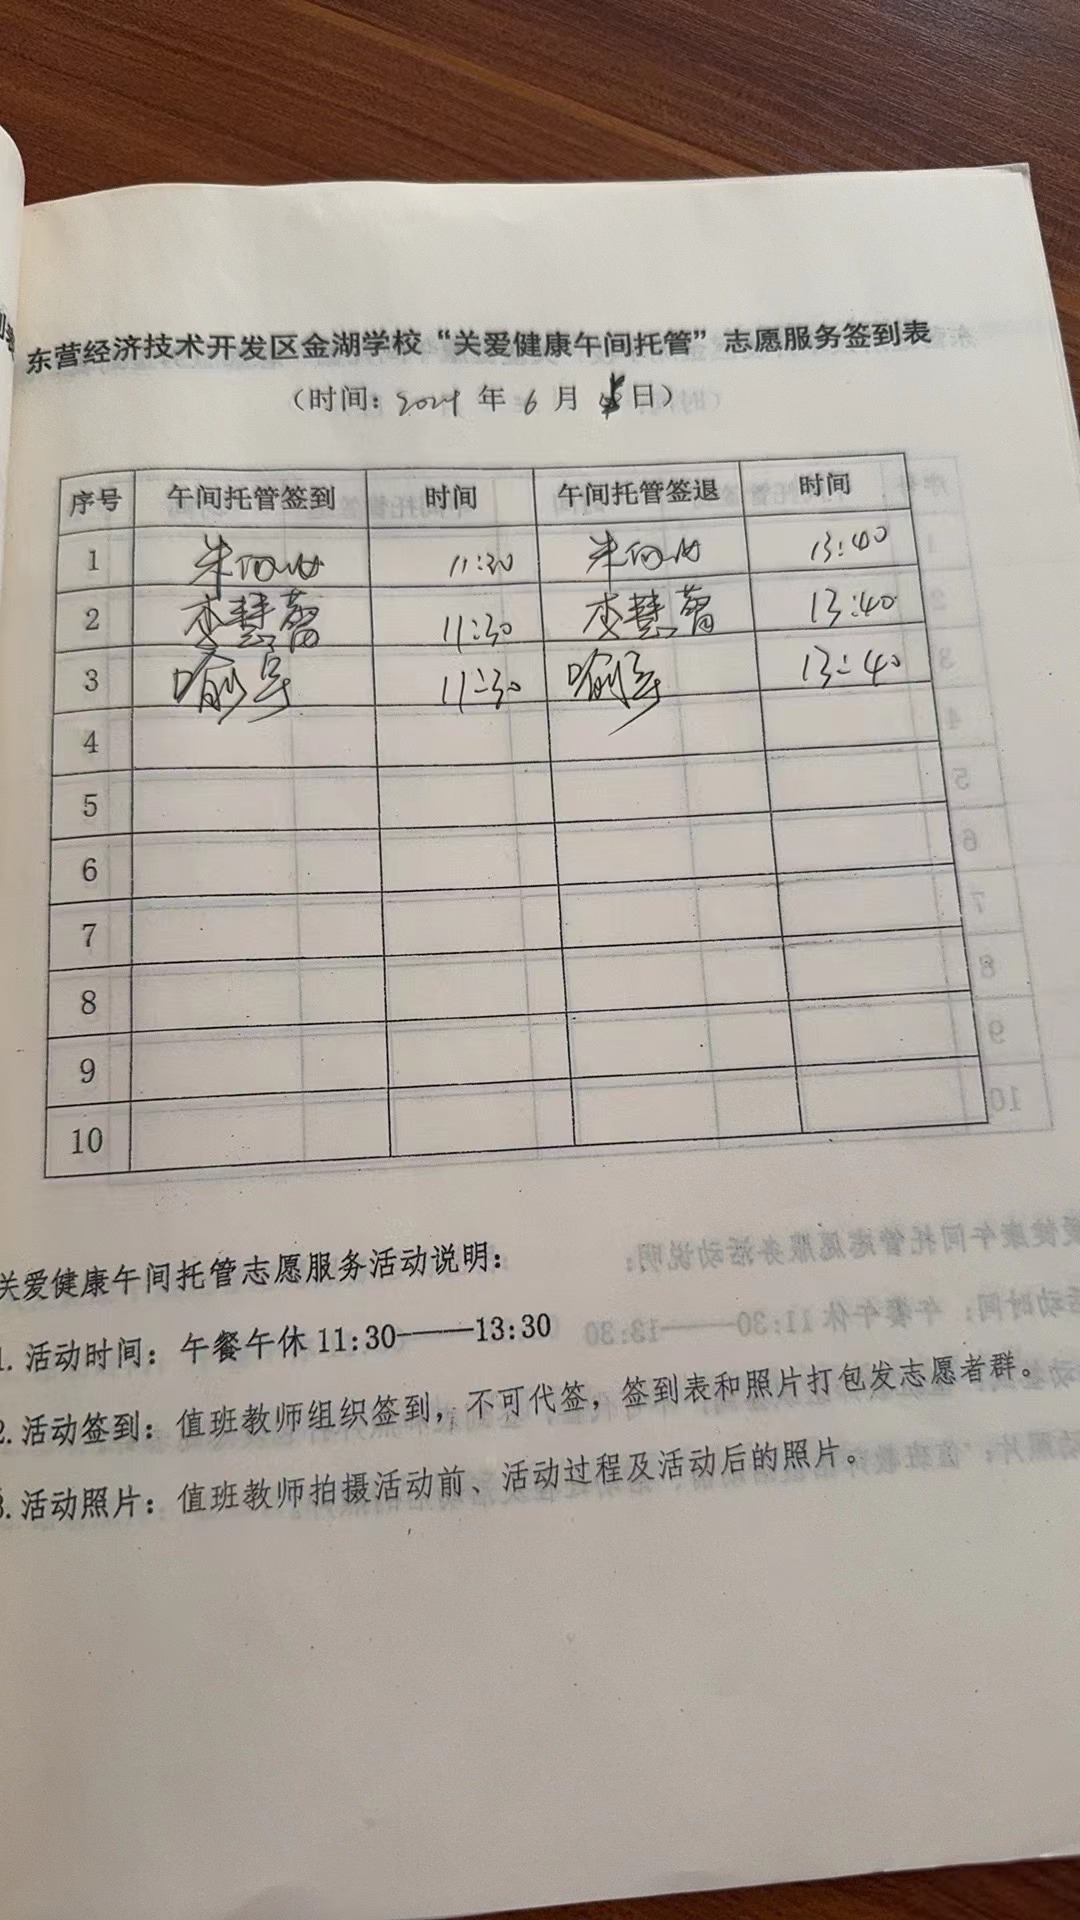 东营经济技术开发区金湖学校“关爱健康午间托管”志愿服务签到表
(时间: 2024 年 6 月 日)
序号 午间托管签到 时间 午间托管签退 时间
1 朱 11:30 朱 13:40
2 李慧 11:30 李慧 13:40
3 喻 11:30 喻 13:40
4
5
6
7
8
9
10
关爱健康午间托管志愿服务活动说明:
1. 活动时间: 午餐午休 11:30——13:30
2. 活动签到: 值班教师组织签到, 不可代签, 签到表和照片打包发志愿者群。
3. 活动照片: 值班教师拍摄活动前、活动过程及活动后的照片。